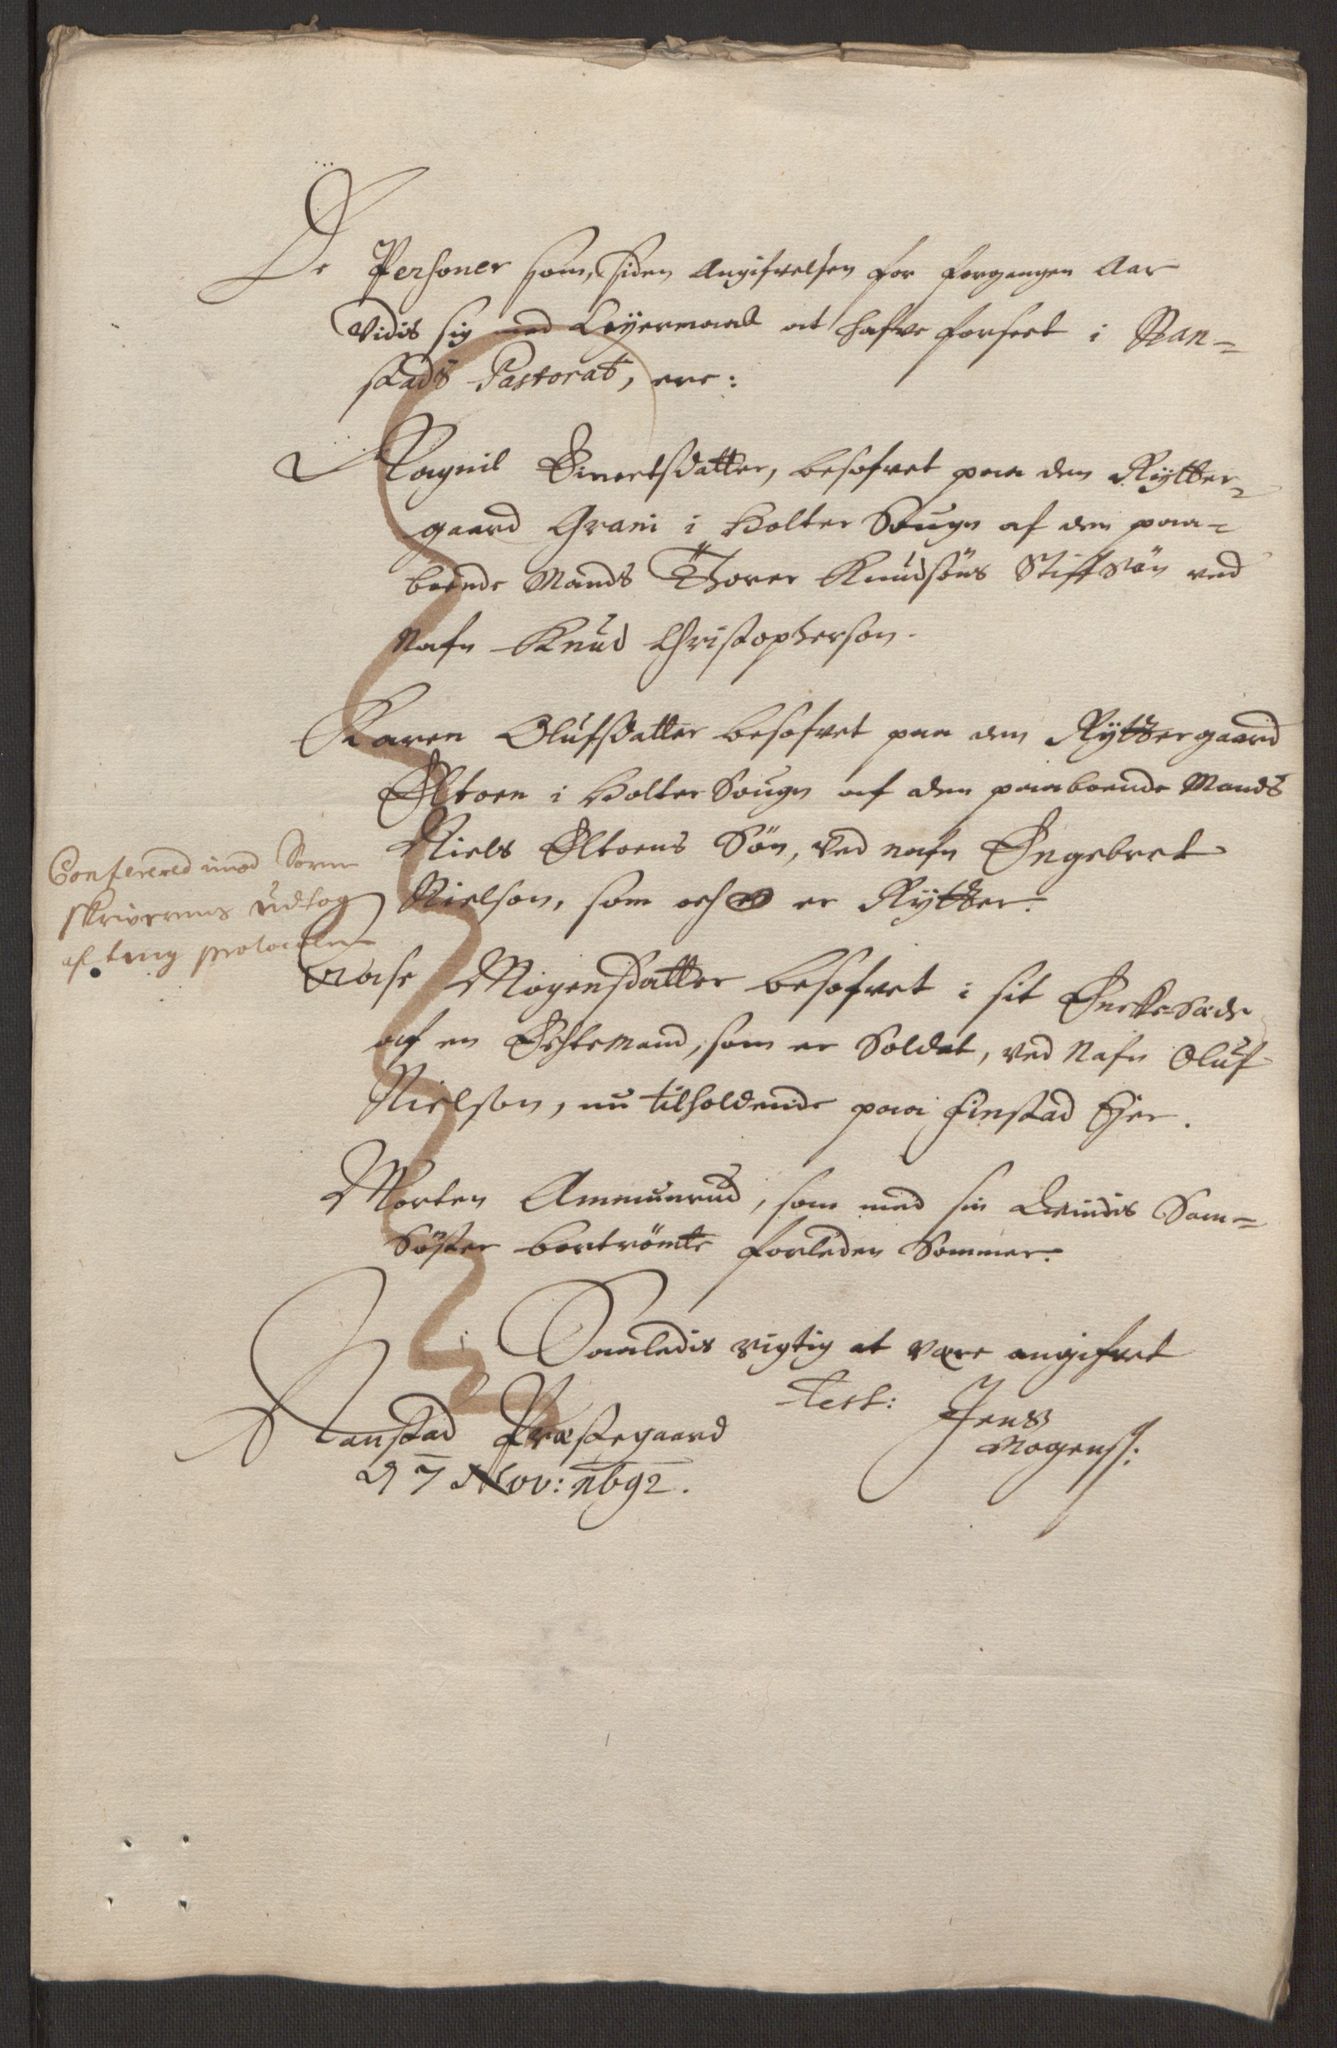 De Personer som, siden Angifvelsen for forgangen Aar
vidis sig med Løyermaal at hafve forseet i Nan-
stads Pastorat, ere:
Ragnil Sivertsdatter, besofvet paa den Rytter-
gaard Grani i Holter Sougn af den paa-
boende Mands Thorer Knudsøns Stiffsøn ved
Nafn Knud Christopherson.
Karen Olufsdatter besofvet paa den Ryttergaard
Eltoen i Holter Sougn af den paaboende Mands
Niels Eltoens Søn, ved nafn Engebret
Nielson, som och er Rytter.
Conferered imod Soren
skriverens udtog
af ting protocollen
Aase Mogensdatter besofvet i sit Enckesæde
af en Echtemand, som er Soldat, ved Nafn Oluf
Nielson, nu tilholdende paa Finstad Ejer.
Morten Ammunrud, som med sin Qvindis Sam-
Søster bortrømte forleden Sommer.
Saaledis rigtig at være angifvet
Test: Jens
Mogenss:
Nanstad Præstegaard
d 7 Nov: 1692.